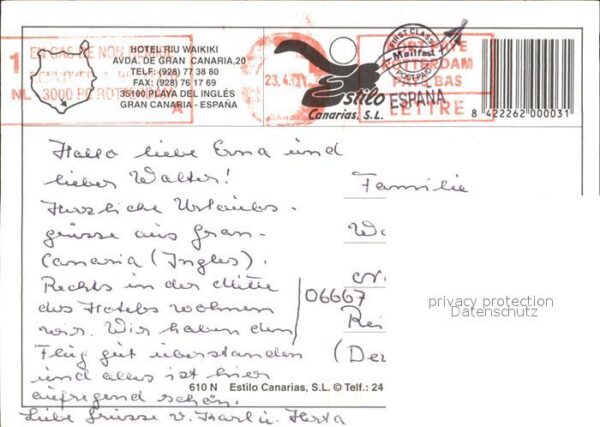 HOTEL RIU WAIKIKI
AVDA. DE GRAN CANARIA, 20
TELF: (928) 77 38 80
FAX: (928) 76 17 69
35100 PLAYA DEL INGLÉS
GRAN CANARIA - ESPAÑA
EN CAS DE NON
NL 3000 ROT
A
23.4
FIRST CLASS
Mailfast
POST-PAID
PORT PAYE
ROTTERDAM
PAYS BAS
LETTRE
Estilo
Canarias, S.L.
ESPAÑA
8 422262 000031
Hallo liebe Erna und
lieber Walter!
Herzliche Urlaubs-
grüsse aus Gran-
Canaria (Ingles).
Rechts in der Mitte
des Hotels wohnen
wir. Wir haben den
Flug gut überstanden
und alles ist hier
aufregend schön.
Liebe Grüsse v. Karl u. Herta
Familie
06667
610 N Estilo Canarias, S.L. © Telf.: 24
privacy protection
Datenschutz